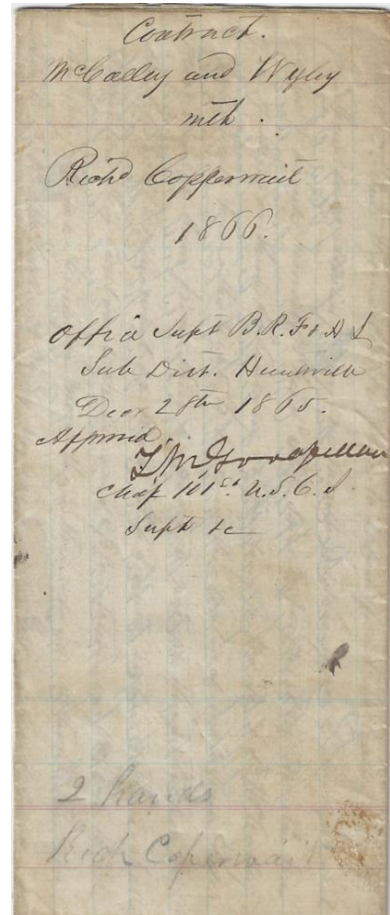 Contract.
McCalley and Wyley
with.
Richd Copperwait
1866.
Office Supt B.R.F & A L
Sub Dist. Huntsville
Decr 28th 1865.
Approved
Chap 101st U.S.C.I.
Supt &c
2 hands
Rich Coperwait